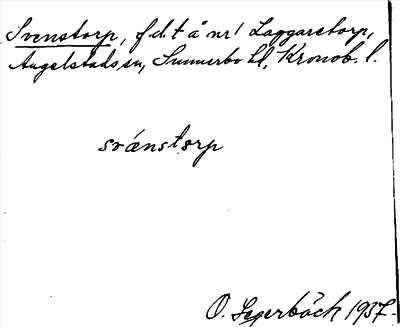 Svenstorp, f.d.t å nr 1 Laggaretorp,
Angelstads sn, Sunnerbo hd, Kronob. l.
svänstorp
O. Segerbäck 1937.